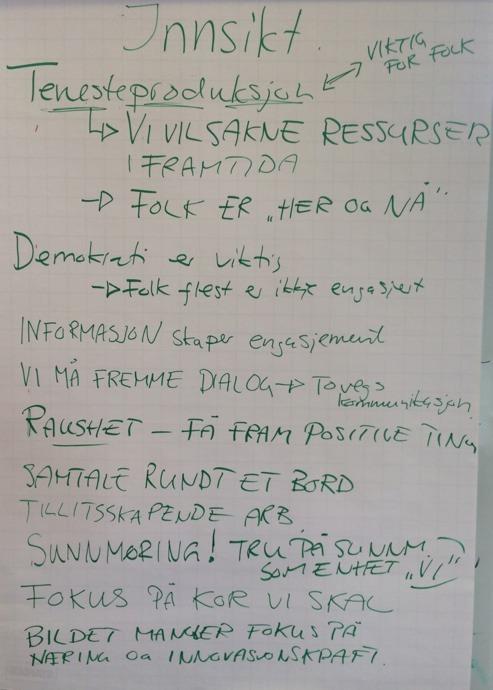 Innsikt.
Tenesteproduksjon ↔ VIKTIG FOR FOLK
↳ VI VIL SAKNE RESSURSER
I FRAMTIDA
→ FOLK ER „HER OG NÅ"
Demokrati er viktig
→ Folk flest er ikkje engasjert
INFORMASJON skaper engasjement
VI MÅ FREMME DIALOG → Tovegs
kommunikasjon
RAUSHET – FÅ FRAM POSITIVE TING
SAMTALE RUNDT ET BORD
TILLITSSKAPENDE ARB.
SUNNMØRING! TRU PÅ SUNNM.
SOM ENHET „VI"
FOKUS PÅ KOR VI SKAL
BILDET MANGLER FOKUS PÅ
NÆRING OG INNOVASJONSKRAFT.